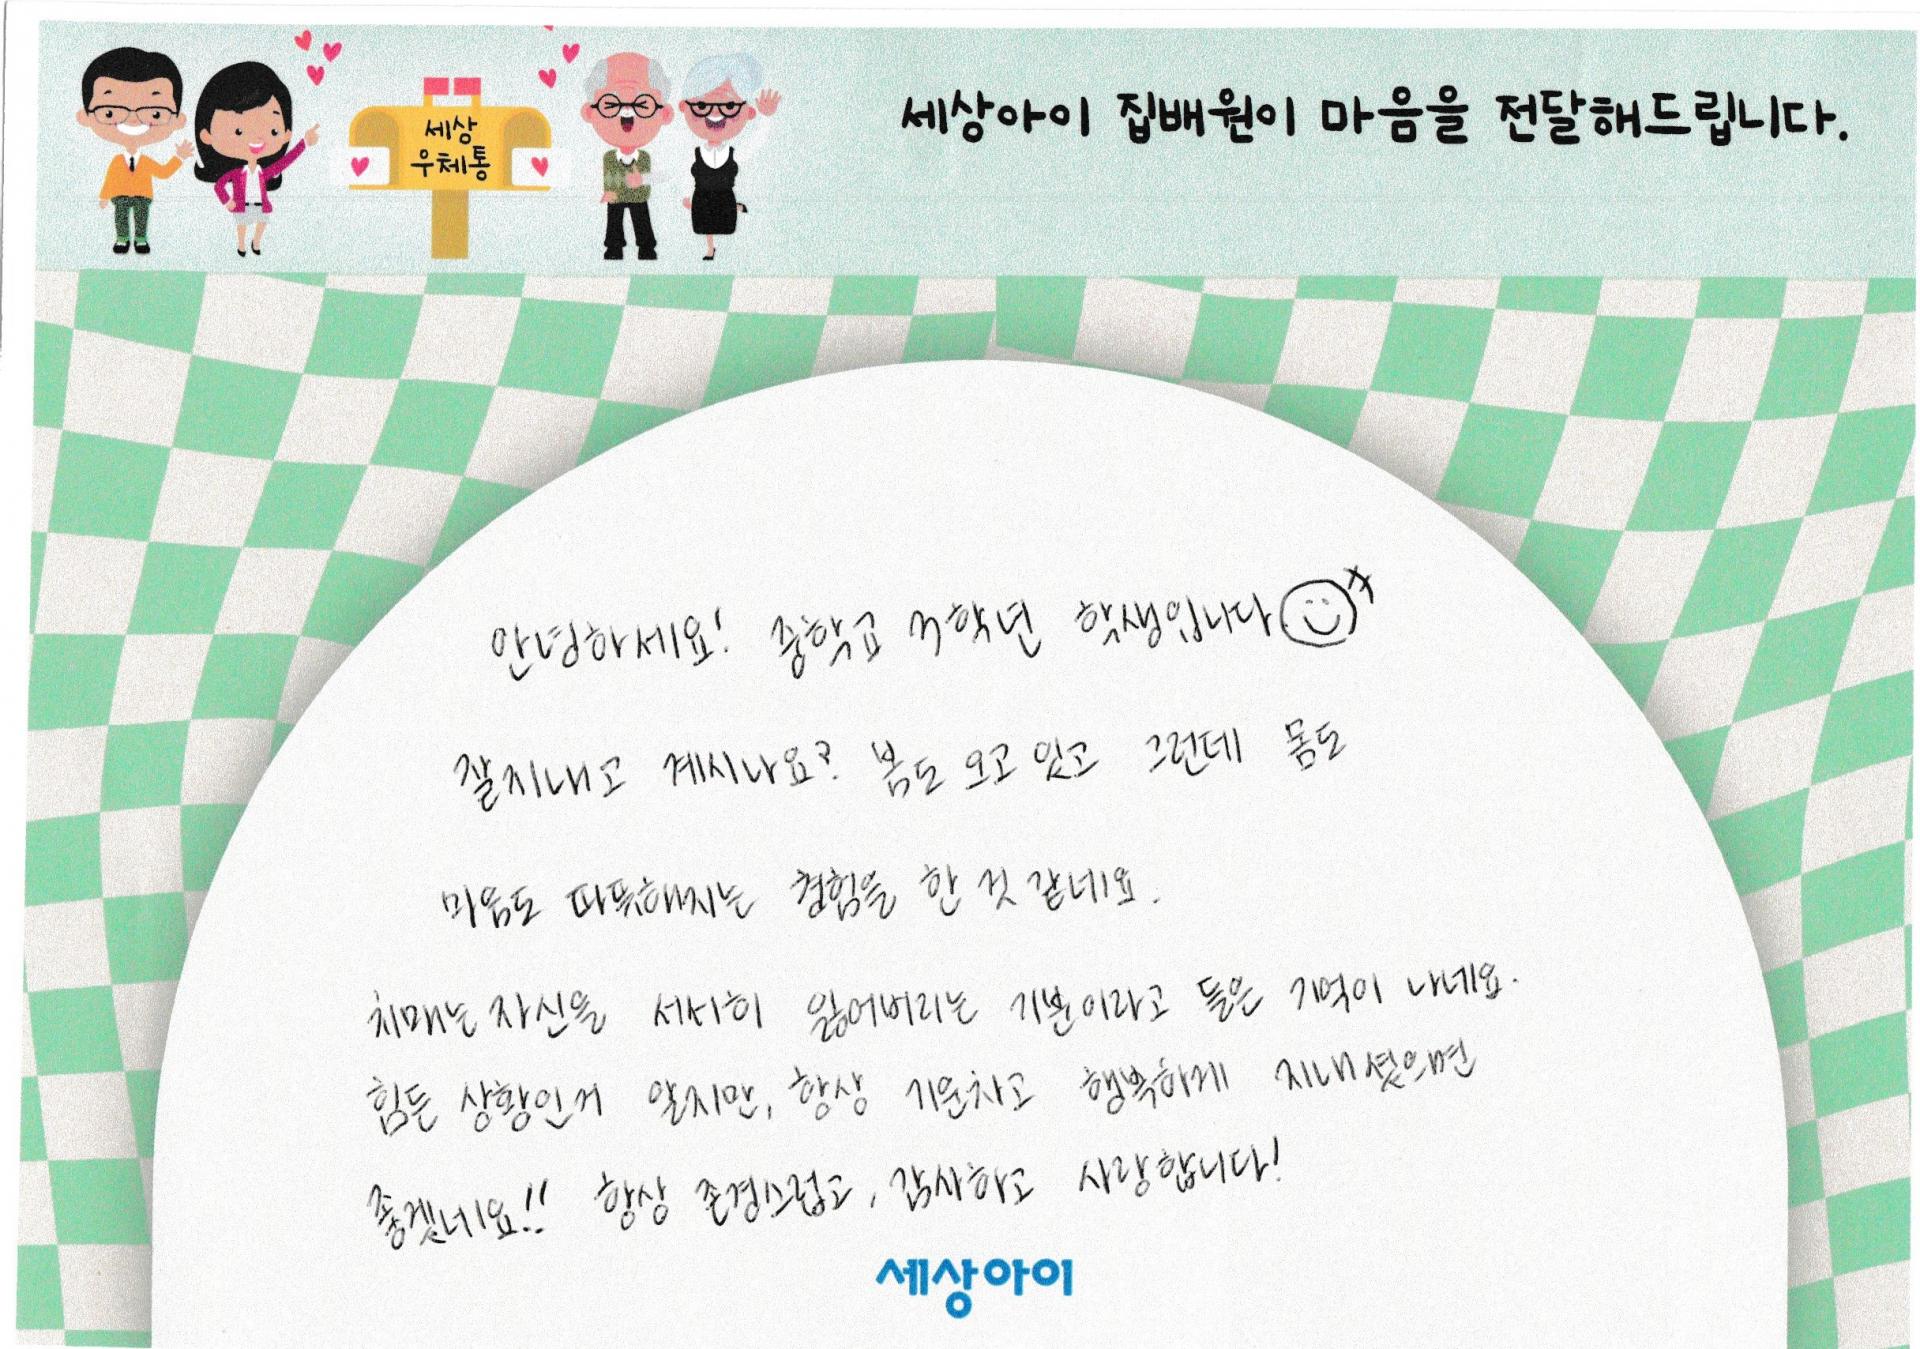 세상
우체통
세상아이 집배원이 마음을 전달해드립니다.
안녕하세요! 중학교 3학년 학생입니다
잘지내고 계시나요? 봄도 오고 있고 그런데 몸도
마음도 따뜻해지는 경험을 한 것 같네요.
치매는 자신을 서서히 잃어버리는 기분이라고 들은 기억이 나네요.
힘든 상황인거 알지만, 항상 기운차고 행복하게 지내셨으면
좋겠네요!! 항상 존경스럽고, 감사하고 사랑합니다!
세상아이